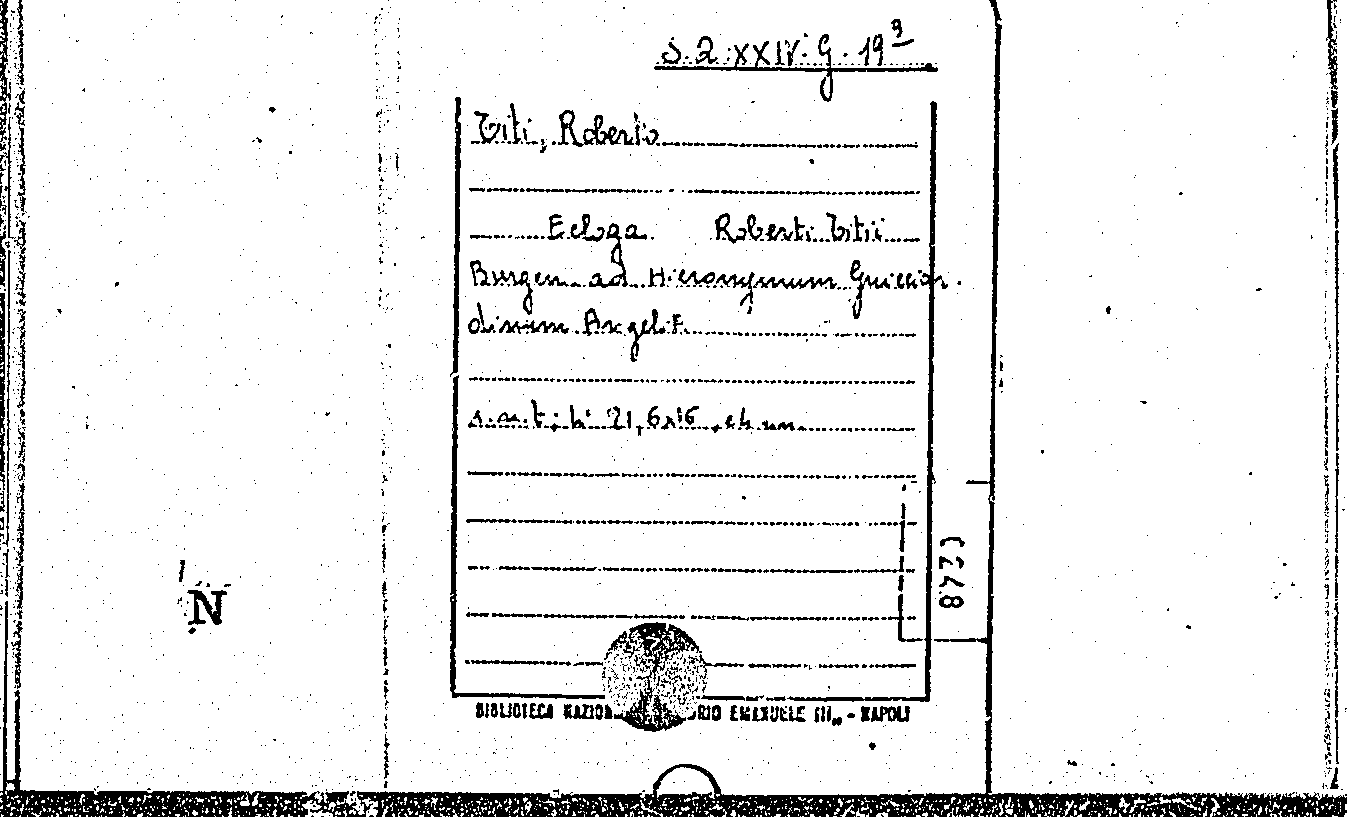 S.Q. XXIV. G. 19³
Titi, Roberto
Ecloga Roberti Titii
Burgen. ad Hieronymum Guicciar.
dinum Angeli F.
s.n.t.; in 21,6x16
BIBLIOTECA NAZION RIO EMANUELE III,, - NAPOLI
N